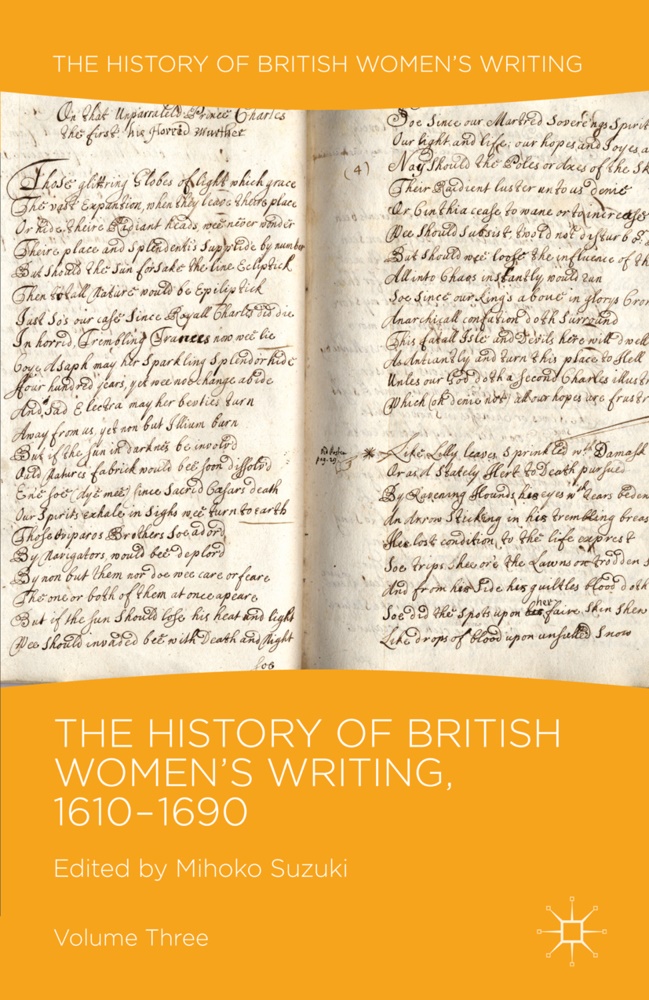 THE HISTORY OF BRITISH WOMEN'S WRITING
On that Unparraleld Prince Charles
the first, his Horrid Murther
Those glittring Globes of light which grace
The vast Expantion, when they leave their place
Or hide their Radiant heads, wee never wonder
Their place and Splendentis Supplide by number
But should the Sun forsake the line Ecliptick
Then totall Nature would be Epileptick
Just So's our case Since Royall Charles did die
In horrid, Trembling Trances now wee lie
Coye Asaph may her Sparkling Splendor hide
Four hundred years, yet wee noe change abide
And Sad Electra may her bevties turn
Away from us, yet non but Illium burn
But if the Sun in darknes be involv'd
Ould Natures fabrick would bee soon dissolv'd
Ene soe (Aye mee) Since Sacred Caesars death
Our Spirits exhale in Sighs wee turn to earth
Those Brothers Soe ador'd
By Navigators, would bee deplor'd
By non but them nor doe wee care or feare
The one or both of them at once apeare
But if the Sun Should lose his heat and light
Wee Should invaded bee with Death and Night
Soe
Soe Since our Martred Sovereings Spirit
Our light, and life, our hopes, and Joyes, a
(4)
Nay Should the Poles or Axes of the Sk
Their Radient luster unto us denie
Or Cinthia cease to wane or to increase
Wee Should Subsist t'would not disturb o
But Should wee loose the influence of th
All into Chaos instantly would run
Soe Since our King's a bove in glory Cro
Anarchicall confution doth Surround
This fatall Isle, and Devils here will dwell
As Antiantly and turn this place to Hell
Unles our God doth a Second Charles illustr
Which (oh denie not) all our hopes are frustr
Like Lilly leaves, Sprinkled wth Damask
Or as a Stately Hert to Death pursued
By Ravening Hounds, his eyes wth tears beden
An Arrow Sticking in his trembling breas
His lost condition, to the life exprest
Soe trips shee ore the Lawns on trodden S
And from his Side his guiltles blood doth
her
Soe did the Spots upon his faire Skin Shew
Like drops of blood upon unsullied Snow
THE HISTORY OF BRITISH
WOMEN'S WRITING,
1610–1690
Edited by Mihoko Suzuki
Volume Three